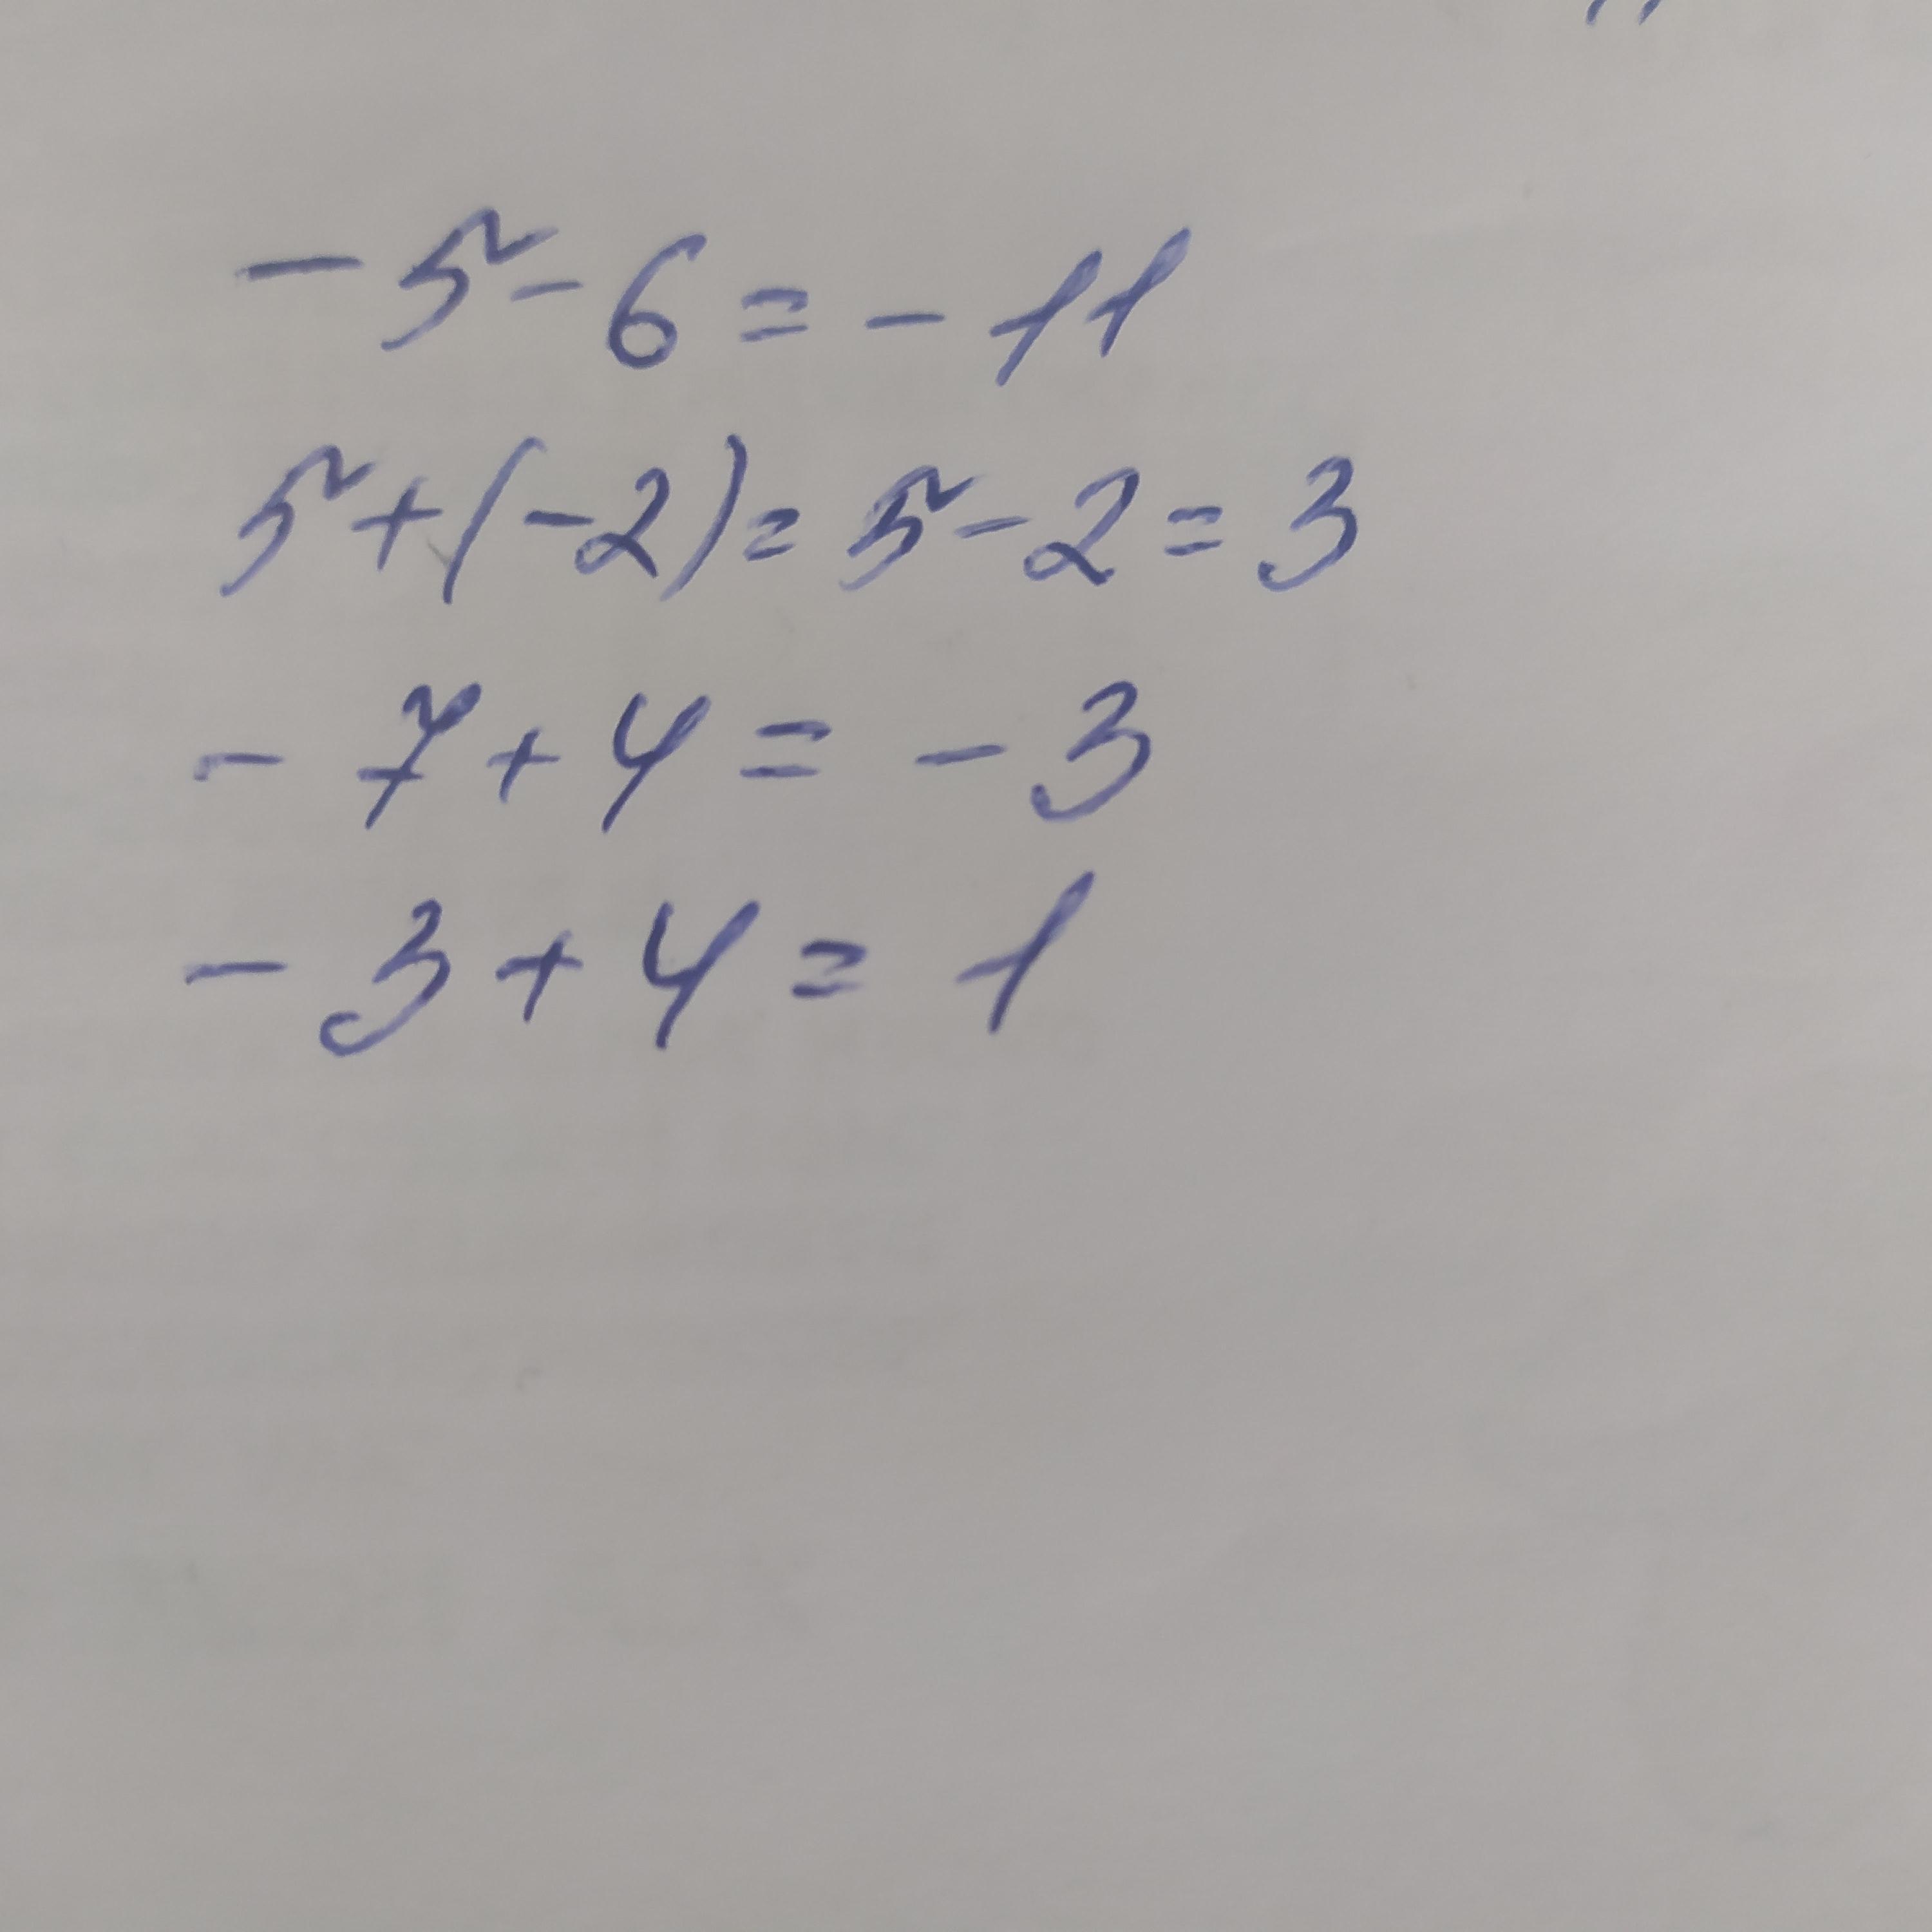 - 5 - 6 = - 11
5 + (-2) = 5 - 2 = 3
- 7 + 4 = - 3
- 3 + 4 = 1